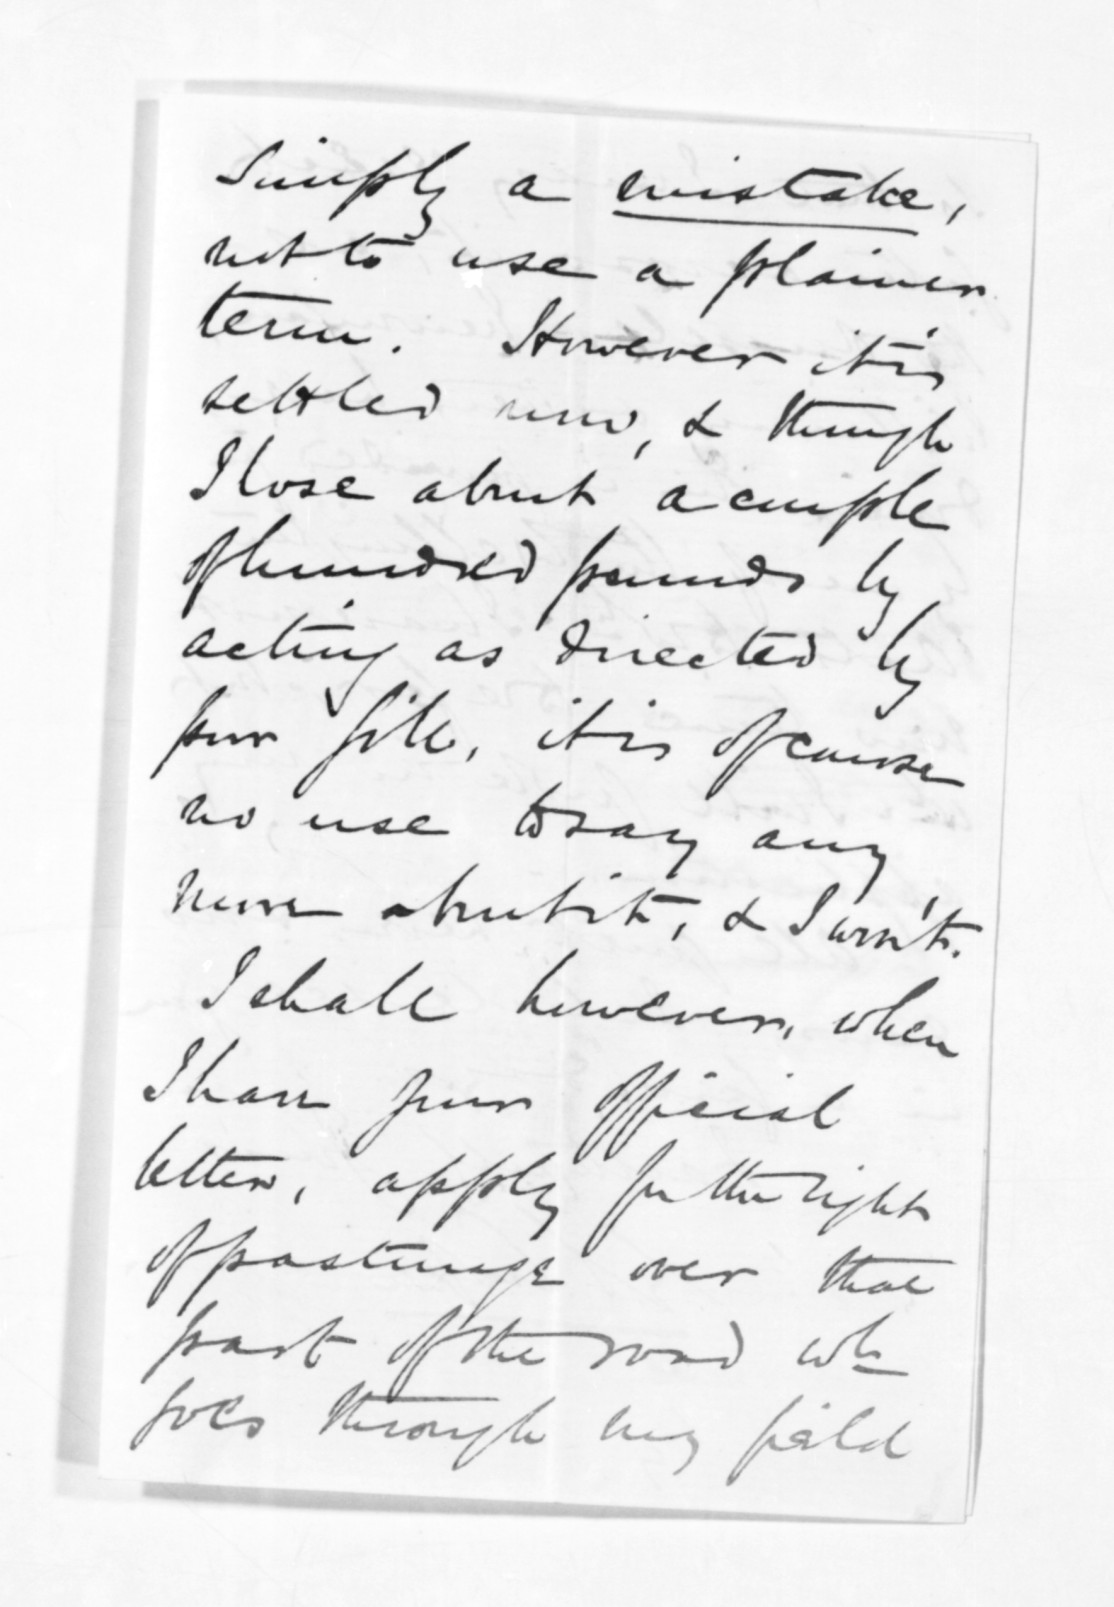 simply a mistake,
not to use a plainer
term. However it is
settled now, & though
I lose about a couple
of hundred pounds by
acting as directed by
your Gill, it is of course
no use to say any
more about it, & I won't.
I shall however, when
I have your official
letter, apply for the right
of pasturage over that
part of the road wh
goes through my field